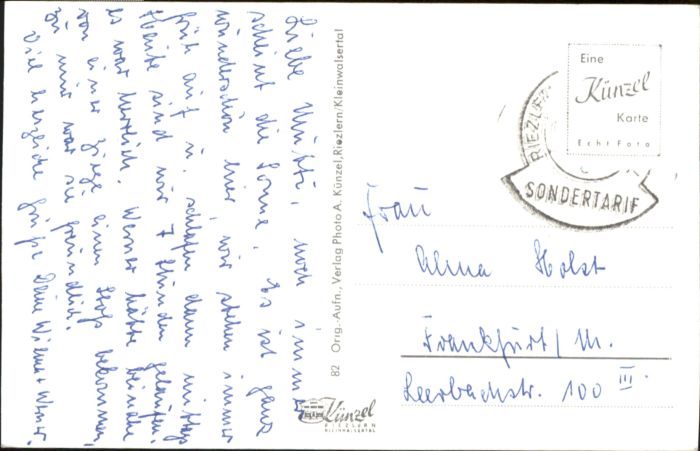 Liebe Mutti, noch immer
scheint die Sonne. Es ist ganz
wunderschön hier, wir stehen immer
früh auf u. schlafen dann mittags
Heute sind wir 7 Stunden gelaufen.
es war herrlich. Werner hätte beinahe
von einer Ziege einen Stoß bekommen,
zu mir war sie freundlich.
Viel herzliche Grüße Deine Wilma + Werner.
82 Orig.-Aufn., Verlag Photo A. Künzel, Riezlern/Kleinwalsertal
Künzel
RIEZLERN
KLEINWALSERTAL
Eine
Künzel
Karte
Echt Foto
RIEZLER
SONDERTARIF
Frau
Alma Holst
Frankfurt/M.
Leerbachstr. 100 III.